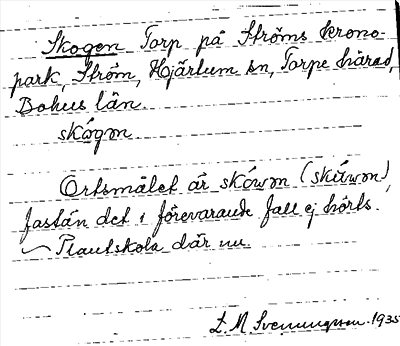 Skogen Torp på Ströms krono-
park, Ström, Hjärtum sn, Torpe härad,
Bohus län.
skógm
Ortsmålet är skówm (skúwm),
fastän det i förevarande fall ej hörts.
Plantskola där nu.
D. M. Svenungsson. 1935